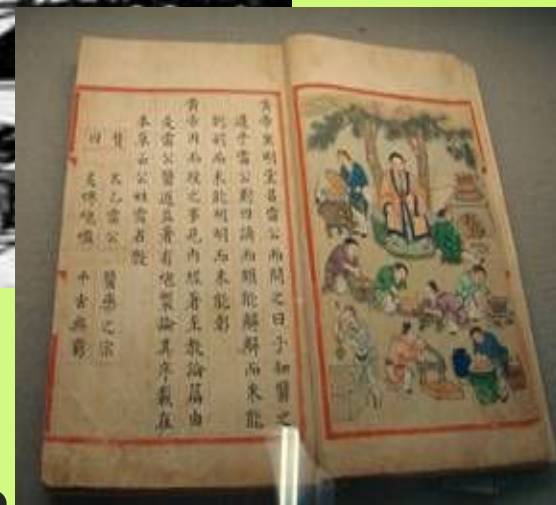 黃帝坐明堂召雷公而問之曰子知醫之
道乎雷公對曰誦而頗能解解而未能
別別而未能明明而未能彰
黃帝因而授之事見內經著至教論篇由
是雷公醫道益著有炮製論其序載在
本草云公姓雷名
贊 太乙雷公 醫藥之宗
曰 炮 千古無窮